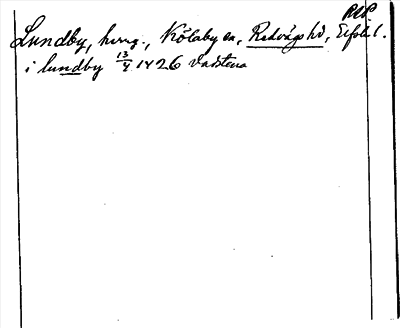 RAP
Lundby, hmg., Kölaby sn, Redvägs hd, Elfsb. l.
i lundby 13/4 1426 Vadstena